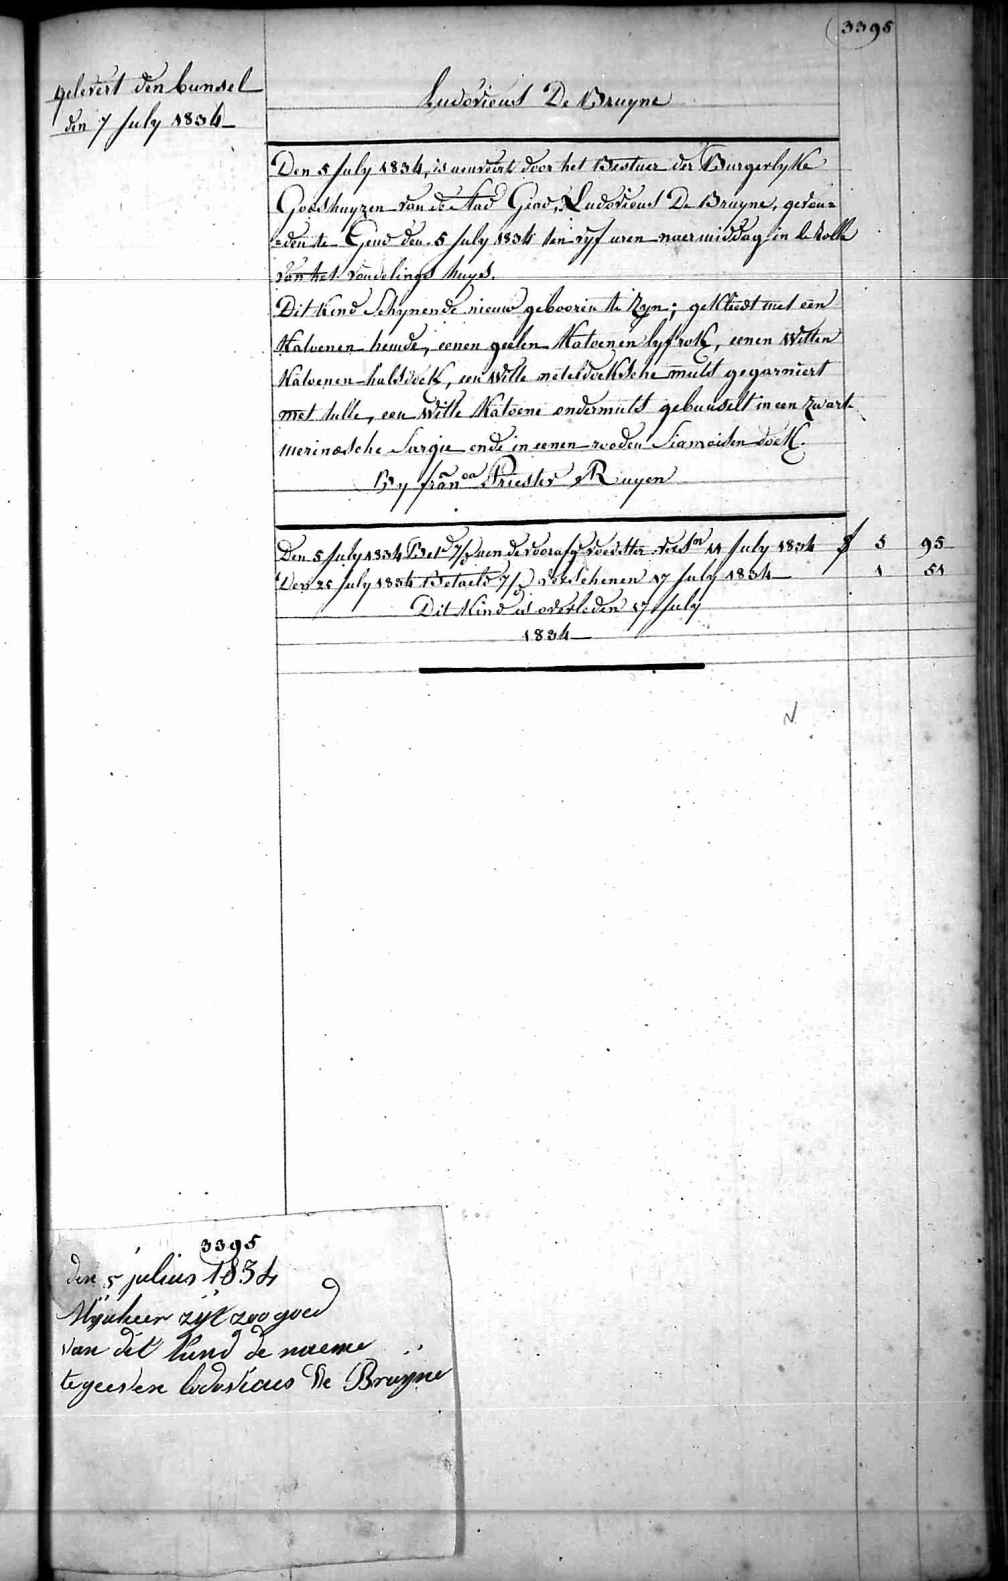 3395
gelevert den bunsel
den 7 July 1834
Ludovicus De Bruyne
Den 5 July 1834, is aenveirt door het Bestuer der Burgerlyke
Godshuyzen van de Stad Gend, Ludovicus De Bruyne, gevon=
=den te Gend den 5 July 1834 ten vyf uren naermiddag in de Rolle
van het vondelings huys.
Dit Kind Schynende nieuw gebooren te zyn; gekleedt met een
Katoenen hemde, eenen geelen Katoenen lyfrok, eenen Witten
Katoenen halsdoek, een Witte neteldoeksche muts gegarniert
met tulle, een Witte Katoene ondermuts gebunselt in een zwart
merinosche Sargie ende in eenen rooden Siamoisen doek.
By Priester Ruyen
Den 5 July 1834 aen de voorafg voedster 11 July 1834 f 5 95
Den 25 July 1834 Betaeld verschenen 17 July 1834 1 51
Dit Kind is overleden 17 July
1834
3395
den 5 julius 1834
Mijnheer zijt zoo goed
van dit kind de naeme
te geeven lodovicus De Bruyne